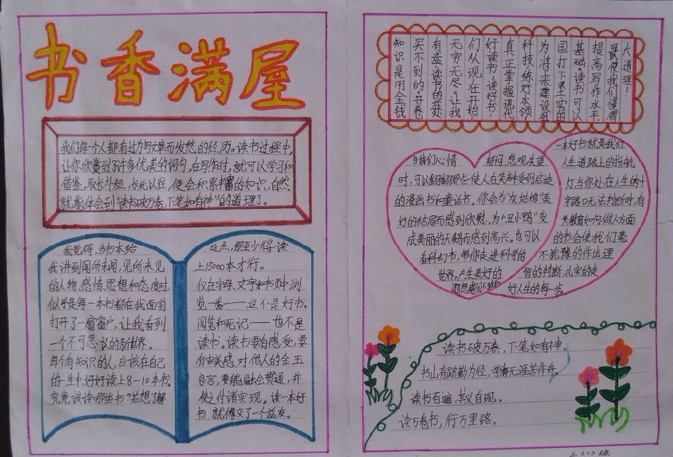 书香满屋
我们每个人都有过为写文章而发愁的经历。读书过程中,
让你欣赏到了许多优美的词句,在写作时,就可以学习和
借鉴,取长补短,长此以往,便会积累丰富的知识,自然
就能体会到"读书破万卷,下笔如有神"的道理了。
我觉得,当书本给
我讲到闻所未闻,见所未见
的人物、感情、思想和态度时
似乎是每一本书都在我面前
打开了一扇窗户,让我看到
一个不可思议的新世界。
每个有知识的人,应该在自己
的一生中,好好读上8-10本书。
究竟该读哪些书
上15000本才行。
仅在字母、文字和书页中浏
览一番——这不是好书。
阅览和死记——也不是
读书。读书要有感受,要
有审美感,对他人的金玉
良言,要能融会贯通,并
使之付诸实现。读一本好
书,就像交了一个益友。
知识是用金钱
买不到的。开卷
有益,读书的益处
无穷无尽。让我
们从现在开始
好读书,读好书,
真正掌握现代
科技练好本领
为将来建设祖
国打下坚实的
基础。读书可以
提高写作水平
使我们懂得
大道理！
当我们心情
时,可以翻翻那些使人在笑声中受到启迪
的漫画书和童话书,你会为"灰姑娘"美
好的结局而感到欣慰,为"丑小鸭"变
成美丽的天鹅而感到高兴。也可以
看科幻书,带你走进科学的
世界,产生美好的
一本好书就是我们
人生道路上的指航
灯当你处在人生的十
字路口无法判断时,有
关教育如何做人方面
的书会使我们毫
不犹豫的作出理
智的判断,扎实的走
好人生的每一步。
读书破万卷,下笔如有神。
书山有路勤为径,学海无涯苦作舟。
读书百遍,其义自现。
读万卷书,行万里路。